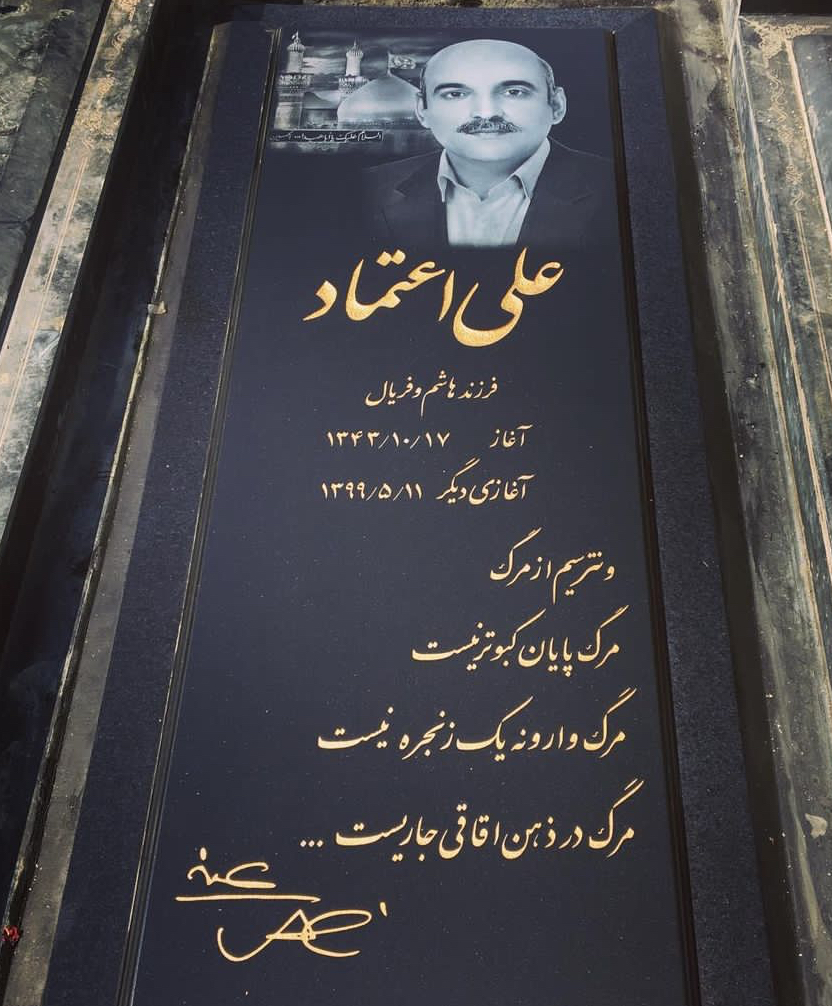 السلام علیک یا اباعبدالله
علی اعتماد
فرزند هاشم و فریال
آغاز ۱۳۴۳/۱۰/۱۷
آغازی دیگر ۱۳۹۹/۵/۱۱
و نترسیم از مرگ
مرگ پایان کبوتر نیست
مرگ وارونه یک زنجره نیست
مرگ در ذهن اقاقی جاریست ...